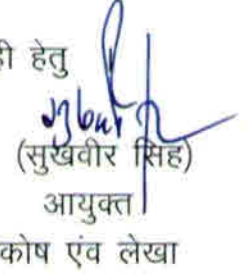 ही हेतु
(सुखवीर सिंह)
आयुक्त
कोष एंव लेखा